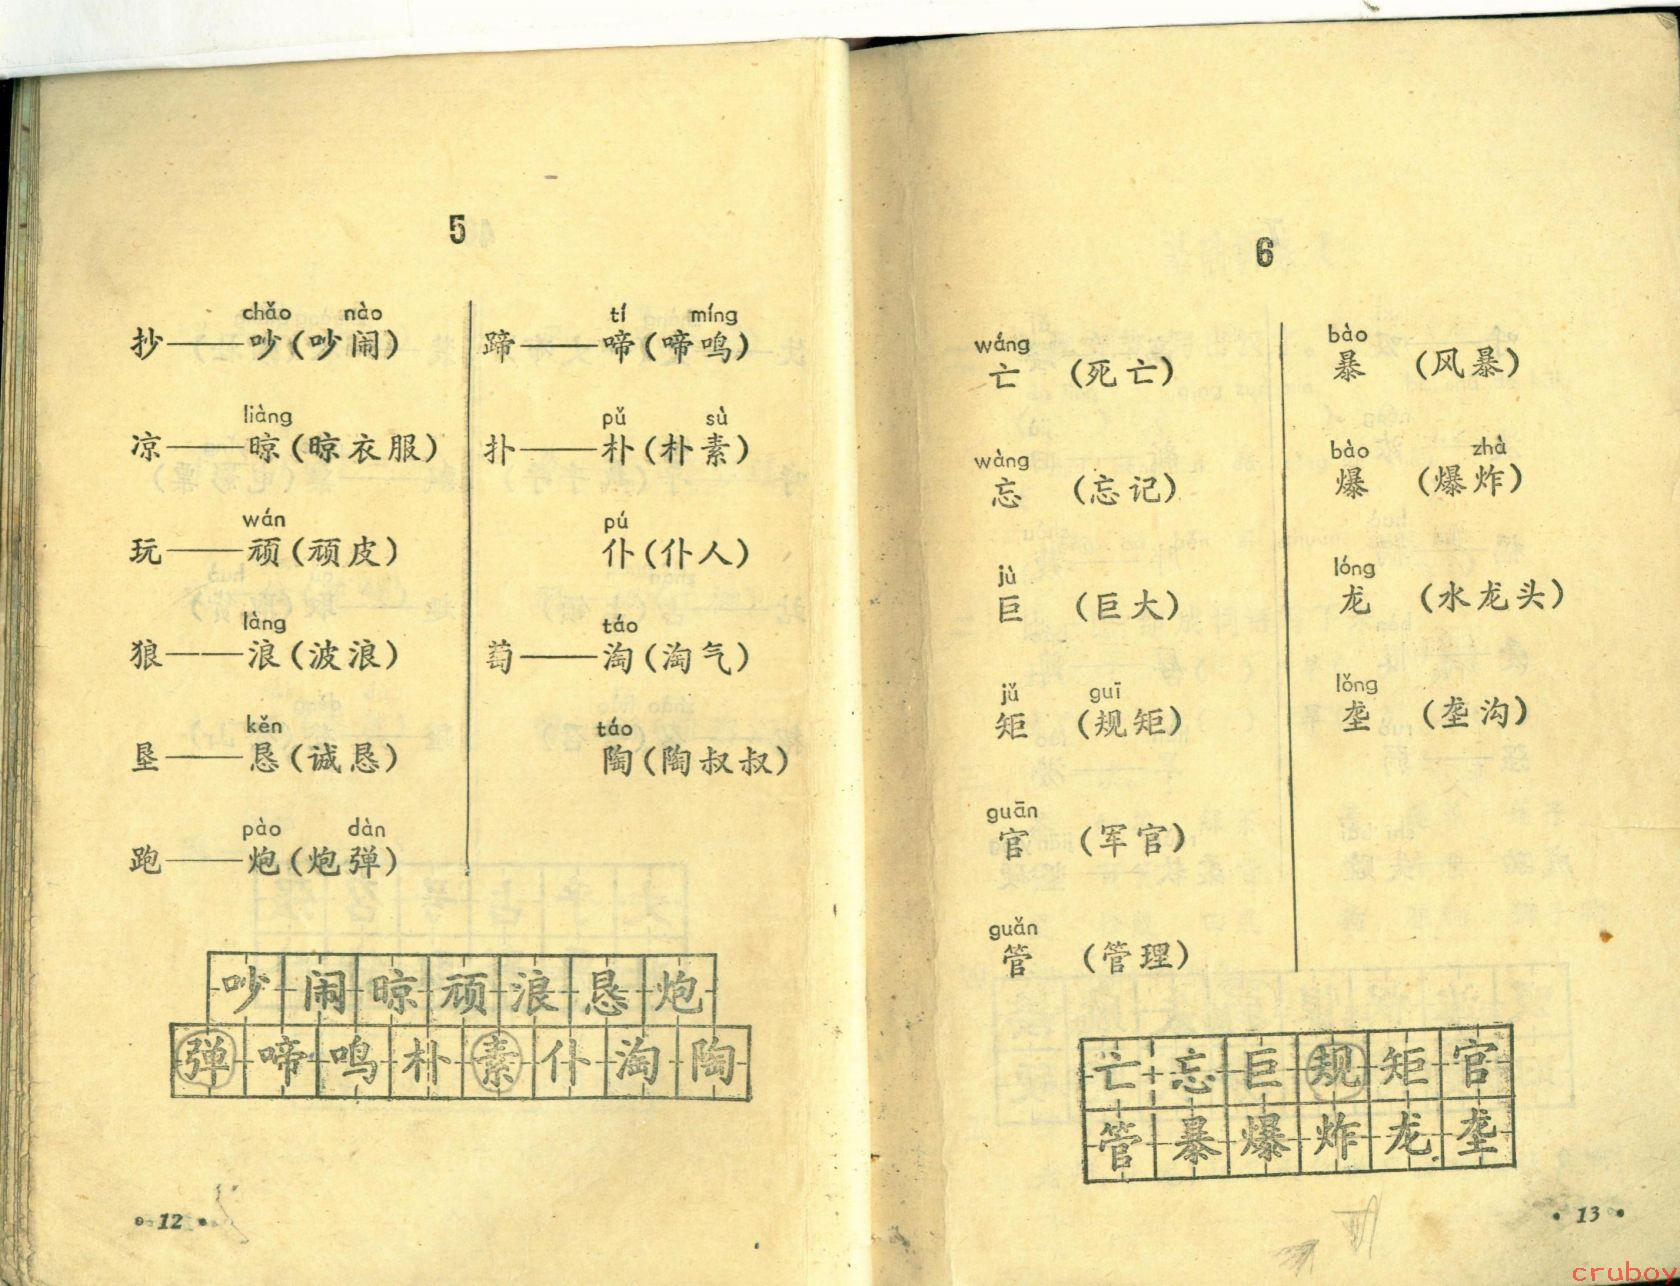 5
chǎo nào
抄——吵(吵闹)
liàng
凉——晾(晾衣服)
wán
玩——顽(顽皮)
làng
狼——浪(波浪)
kěn
垦——恳(诚恳)
pào dàn
跑——炮(炮弹)
tí míng
蹄——啼(啼鸣)
pǔ sù
扑——朴(朴素)
pú
仆(仆人)
táo
萄——淘(淘气)
táo
陶(陶叔叔)
吵闹晾顽浪恳炮
弹啼鸣朴素仆淘陶
• 12 •
6
wáng
亡 (死亡)
wàng
忘 (忘记)
jù
巨 (巨大)
jǔ guī
矩 (规矩)
guān
官 (军官)
guǎn
管 (管理)
bào
暴 (风暴)
bào zhà
爆 (爆炸)
lóng
龙 (水龙头)
lǒng
垄 (垄沟)
亡忘巨规矩官
管暴爆炸龙垄
• 13 •
cruboy